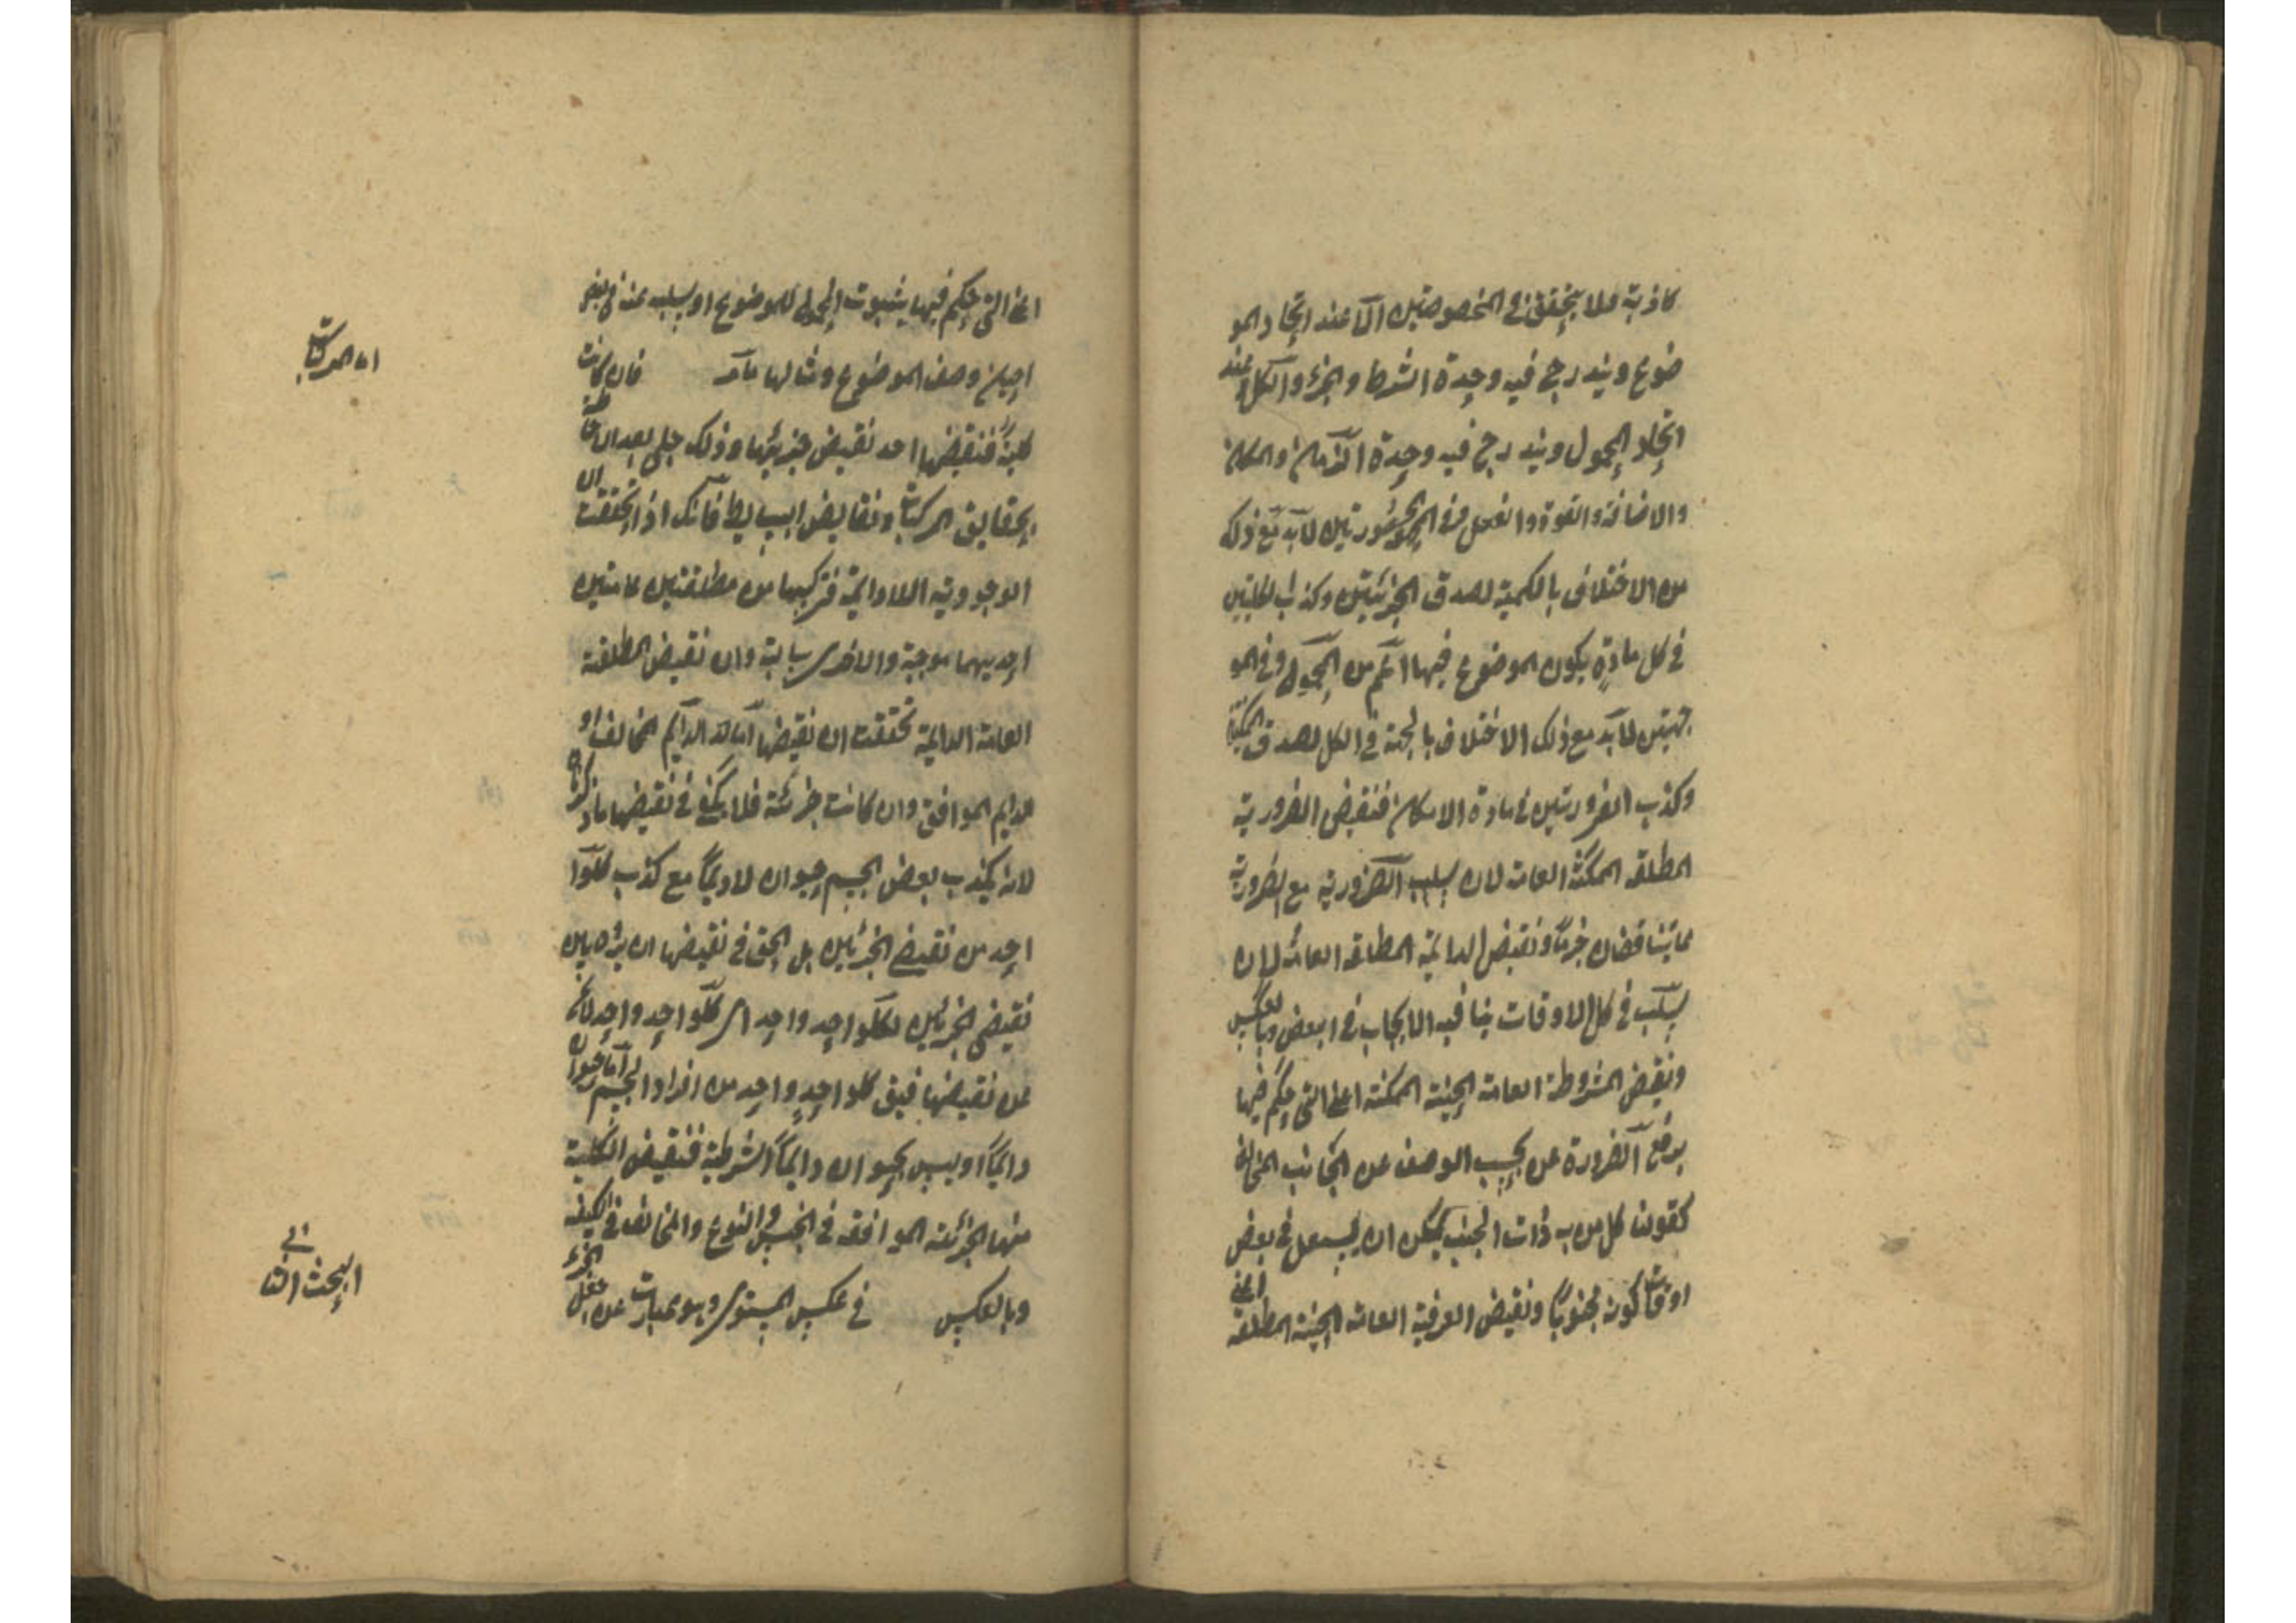 كاذبة ولا يتحقق في المخصوصتين الا عند اتحاد المو
ضوع ويندرج فيه وحدة الشرط والجزء والكل وعند
اتحاد المحمول ويندرج فيه وحدة الزمان والمكان
والاضافة والقوة والفعل وفي المحصورتين لابد مع ذلك
من الاختلاف بالكمية لصدق الجزئيتين وكذب الكليتين
في كل مادة يكون الموضوع فيها اعم من المحمول وفي المو
جهتين لابد مع ذلك الاختلاف بالجهة في الكل لصدق الممكنتين
وكذب الضرورتين في مادة الامكان فنقيض الضرورية
المطلقة الممكنة العامة لان سلب الضرورية مع الضرورية
مما يتناقضان جزما ونقيض الدائمة المطلقة العامة لان
السلب في كل الاوقات ينافيه الايجاب في البعض وبالعكس
ونقيض المشروطة العامة الحينية الممكنة اعني التي حكم فيها
برفع الضرورة عن بحسب الوصف عن الجانب المخالف
كقولنا كل من به ذات الجنب يمكن ان يسعل في بعض
اوقات كونه مجنوبا ونقيض العرفية العامة الحينية المطلقة اعني
اعني التي حكم فيها بثبوت المحمول للموضوع او سلبه عنه في بعض
احيان وصف الموضوع ومثالها ما مر فان كانت
اما المركبات
كلية فنقيضها احد نقيض جزئيها وذلك جلي بعد الاحاطة
بحقايق المركبات ونقايض البسايط فانك اذا تحققت ان
الوجودية اللادايمة تركيبها من مطلقتين عامتين
احديهما موجبة والاخرى سالبة وان نقيض المطلقة
العامة الدايمة تحققت ان نقيضها اما الدايم المخالف او
الدايم الموافق وان كانت جزئية فلا يكفي في نقيضها ما ذكرناه
لانه يكذب بعض الجسم حيوان لا دايما مع كذب كلوا
احد من نقيضي الجزئين بل الحق في نقيضها ان يردد بين
نقيضي الجزئين لكلواحد واحد اي كلواحد واحد لا يخ
عن نقيضها فيق كلواحد واحد من افراد الجسم اما حيوان
دايما او ليس بحيوان دايما الشرطية فنقيض الكلية
منها الجزئية الموافقة في الجنس والنوع والمخالف في الكيف
وبالعكس في عكس المستوي وهو عبارت عن جعل الجزء
البحث الثاني